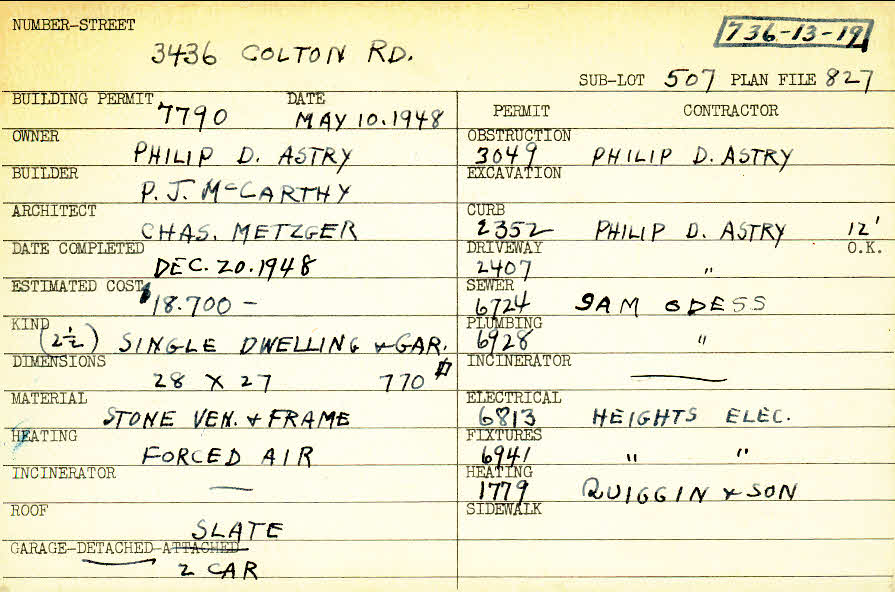 NUMBER-STREET
736-13-19
3436 COLTON RD.
SUB-LOT 507 PLAN FILE 827
BUILDING PERMIT 7790 DATE MAY 10.1948
OWNER PHILIP D. ASTRY
BUILDER P. J. McCARTHY
ARCHITECT CHAS. METZGER
DATE COMPLETED DEC. 20.1948
ESTIMATED COST $18.700 —
KIND (2½) SINGLE DWELLING & GAR.
DIMENSIONS 28 X 27 770 #
MATERIAL STONE VEN. & FRAME
HEATING FORCED AIR
INCINERATOR —
ROOF SLATE
GARAGE-DETACHED-ATTACHED
2 CAR
PERMIT CONTRACTOR
OBSTRUCTION 3049 PHILIP D. ASTRY
EXCAVATION
CURB 2352 PHILIP D. ASTRY 12'
DRIVEWAY 2407 " O.K.
SEWER 6724 SAM ODESS
PLUMBING 6928 "
INCINERATOR —
ELECTRICAL 6813 HEIGHTS ELEC.
FIXTURES 6941 " "
HEATING 1779 QUIGGIN & SON
SIDEWALK